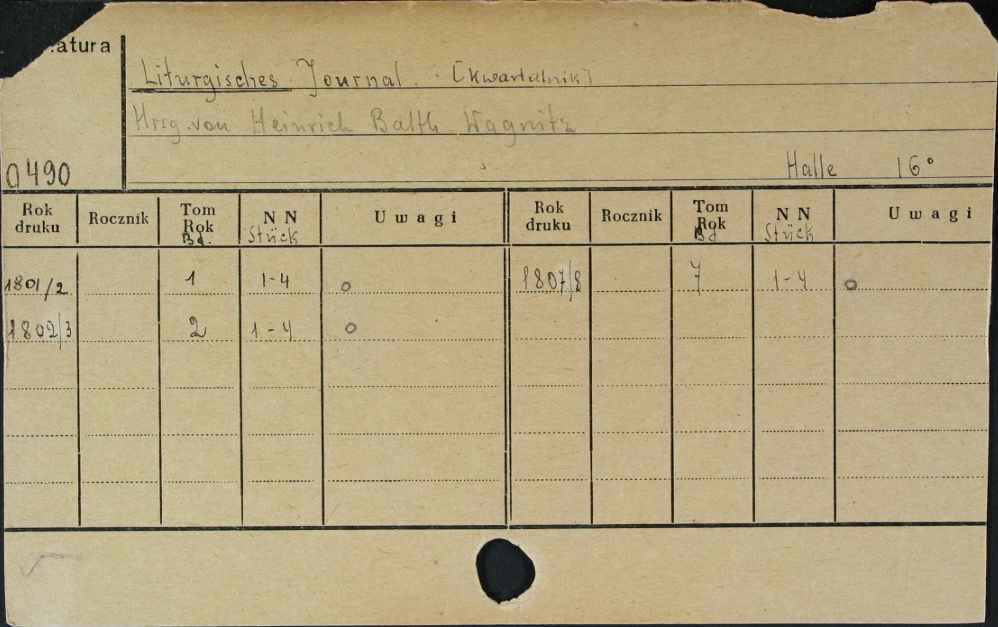 atura
Liturgisches Journal. [Kwartalnik]
Hrsg. von Heinrich Balth Wagnitz
0490 Halle 16°
Rok druku Rocznik Tom Rok Bd. N N Stück Uwagi Rok druku Rocznik Tom Rok Bd N N Stück Uwagi
1801/2 1 1-4 o 1807/8 7 1-4 o
1802/3 2 1-4 o